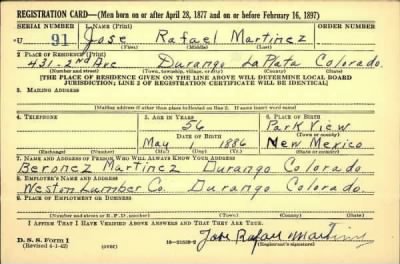 REGISTRATION CARD—(Men born on or after April 28, 1877 and on or before February 16, 1897)
SERIAL NUMBER 1. NAME (Print) ORDER NUMBER
U 91 Jose Rafael Martinez
(First) (Middle) (Last)
2. PLACE OF RESIDENCE (Print)
431-2nd Ave Durango La Plata Colorado.
(Number and street) (Town, township, village, or city) (County) (State)
[THE PLACE OF RESIDENCE GIVEN ON THE LINE ABOVE WILL DETERMINE LOCAL BOARD
JURISDICTION; LINE 2 OF REGISTRATION CERTIFICATE WILL BE IDENTICAL]
3. MAILING ADDRESS
[Mailing address if other than place indicated on line 2. If same insert word same]
4. TELEPHONE 5. AGE IN YEARS 6. PLACE OF BIRTH
56 Park View
DATE OF BIRTH (Town or county)
May 1 1886 New Mexico
(Exchange) (Number) (Mo.) (Day) (Yr.) (State or country)
7. NAME AND ADDRESS OF PERSON WHO WILL ALWAYS KNOW YOUR ADDRESS
Beronez Martinez Durango Colorado
8. EMPLOYER'S NAME AND ADDRESS
Weston Lumber Co. Durango Colorado.
9. PLACE OF EMPLOYMENT OR BUSINESS
(Number and street or R. F. D. number) (Town) (County) (State)
I AFFIRM THAT I HAVE VERIFIED ABOVE ANSWERS AND THAT THEY ARE TRUE.
D. S. S. Form 1
(Revised 4-1-42) (over) 16—21630-2 Jose Rafael Martinez
(Registrant's signature)